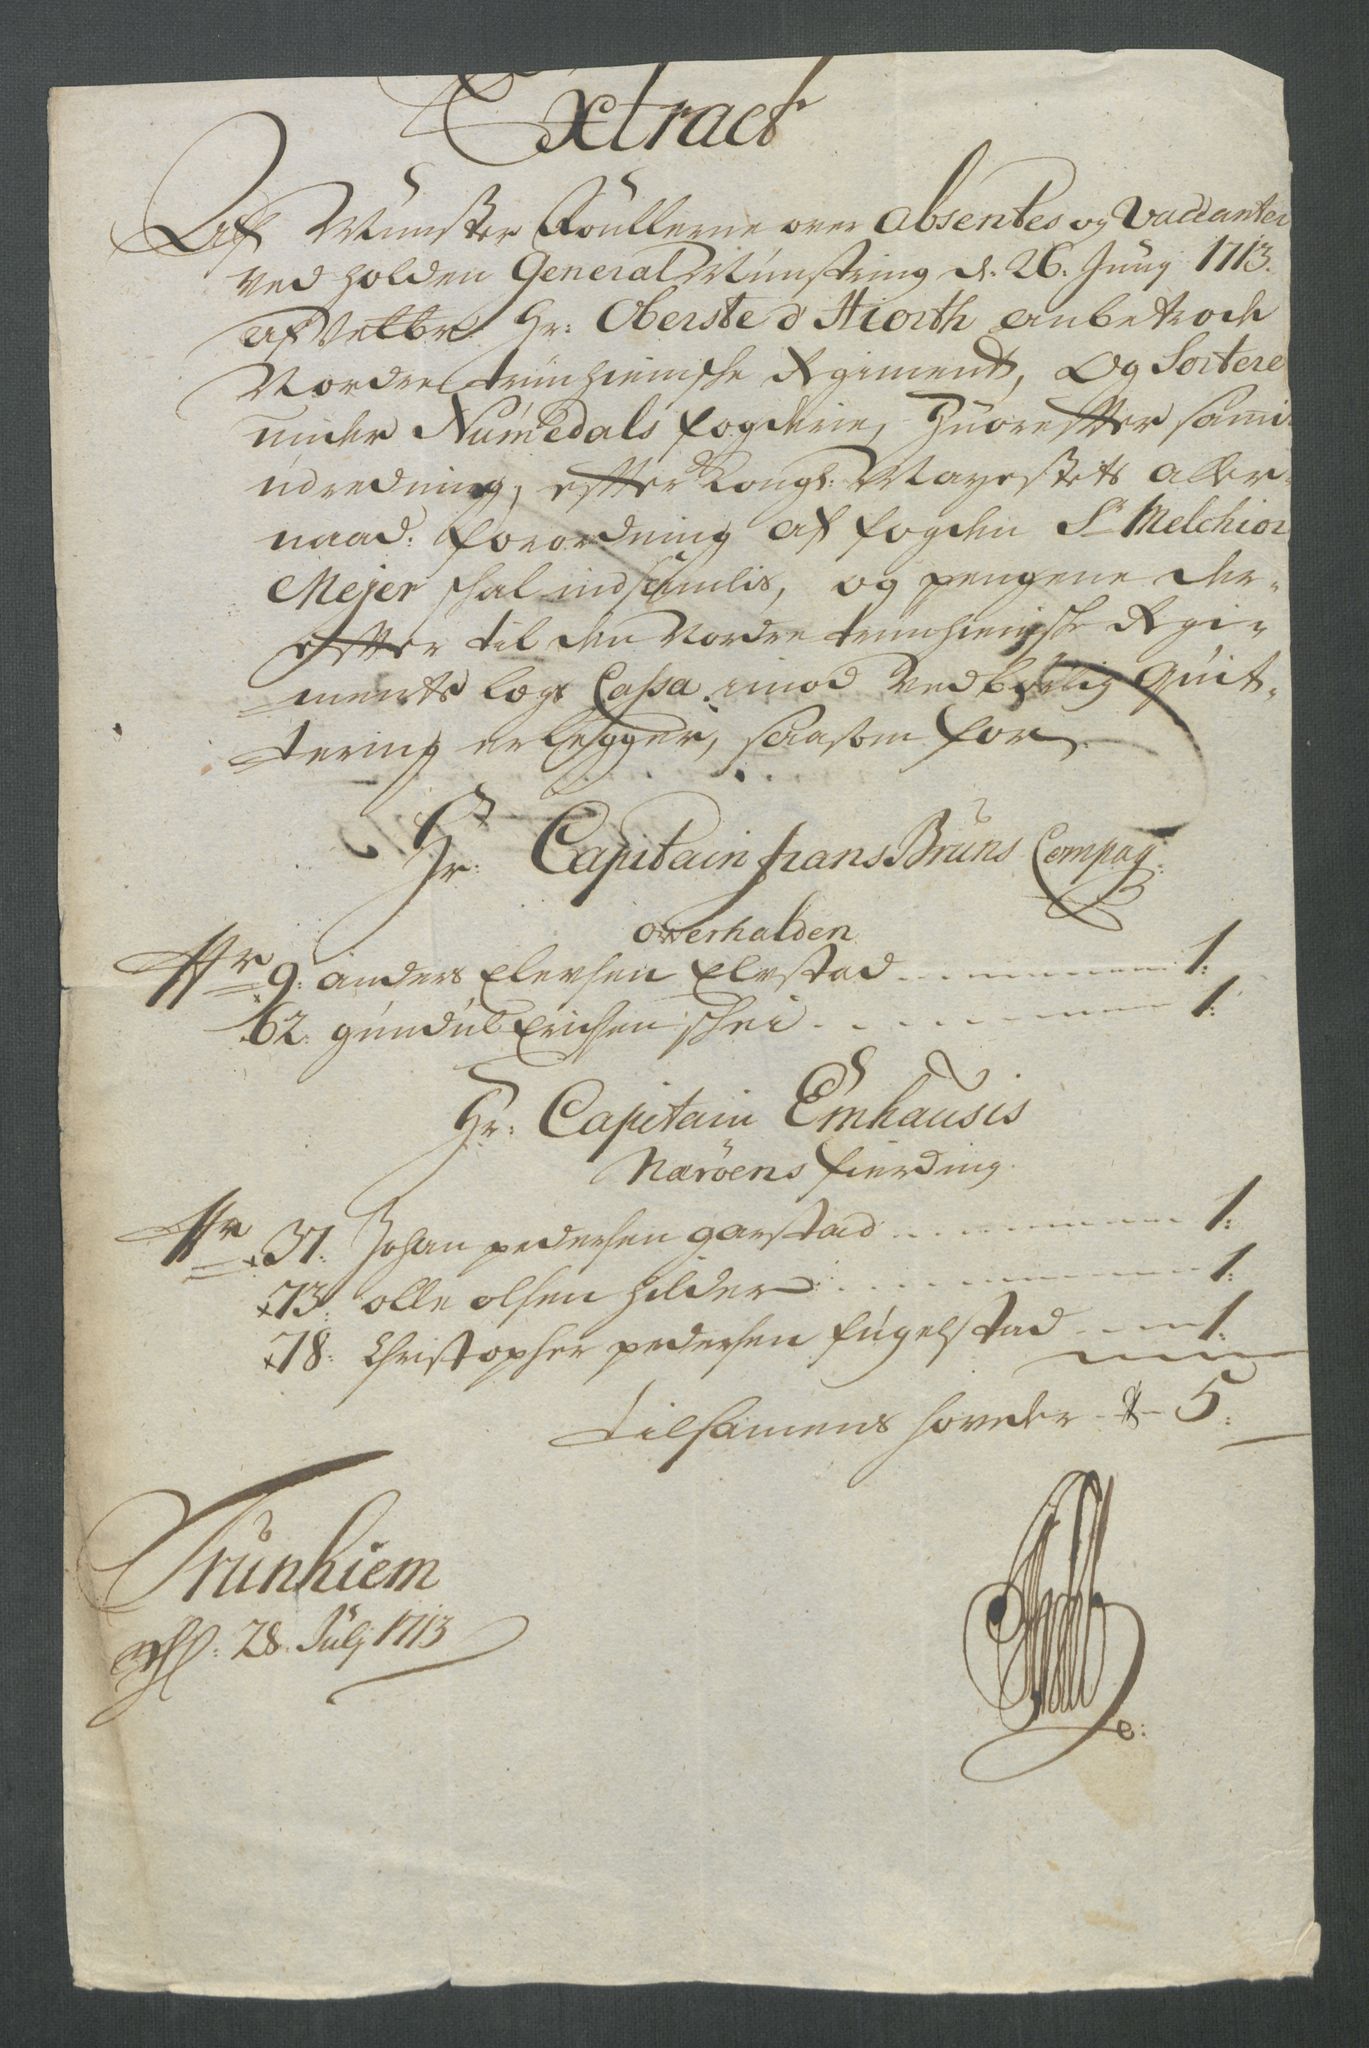 Extract
Aff Mynster Roullerne over Absentes og Vaccanter
ved holden General Mynstring d. 26. Junij 1713.
af Velbr: Hr: Oberste d' Hiorth anbetrode
Nordre trunhiemske Regiment, Og Sortere
under Numedals fogderie, Huoreffter
udredning, effter Kongl: Mayestets aller-
naad: forordning af fogden Sr Melchior
Mejer skal indsamlis, og pengene der-
effter til den Nordre trunhiemske Regi-
ments legs Cassa imod Vedbørlig Quit-
tering erlegger, saasom for
Hr: Capitain frans Bruns Compag:
Overhalden
Nr 9: anders Elevsen Elvstad 1:
62: gundul Erichsen schei 1:
Hr: Capitain Emhausis
Næröens fierding
Nr 37: Johan pedersen garstad 1:
73: olle olsen hilder 1:
78: Christopher pedersen fugelstad 1:
tilsamens hoveder 5:
Trunhiem
28. Julj 1713